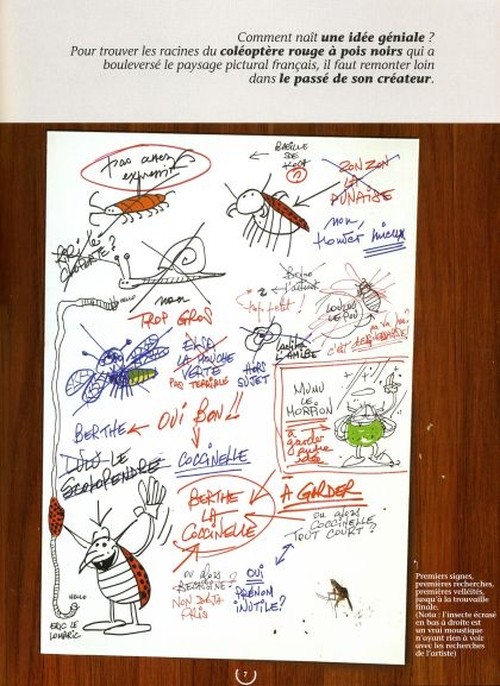 Comment naît une idée géniale ?
Pour trouver les racines du coléoptère rouge à pois noirs qui a
bouleversé le paysage pictural français, il faut remonter loin
dans le passé de son créateur.
pas assez
expressif
BACILLE
DE
KOCH
?
ZONZON
LA
PUNAISE
non,
trouver mieux
CLOPORTE ?
HELLO
non
TROP GROS
Bruno
l'acarien
trop petit !
LOULOU
LE POU
ça va pas ?
c'est dégueulasse !
ELSA
LA MOUCHE
VERTE
PAS TERRIBLE
L'AMIBE
HORS
SUJET
MUMU
LE
MORPION
à
garder
autre
idée
BERTHE
OUI BON !!
LULU LE
SCOLOPENDRE
COCCINELLE
BERTHE
LA
COCCINELLE
À GARDER
ou alors
COCCINELLE
TOUT COURT ?
ou alors
NON DÉJÀ
PRIS
OUI
PRÉNOM
INUTILE ?
HELLO
ERIC LE
LOMBRIC
Premiers signes,
premières recherches,
premières velléités,
jusqu'à la trouvaille
finale.
(Nota : l'insecte écrasé
en bas à droite est
un vrai moustique
n'ayant rien à voir
avec les recherches
de l'artiste)
7